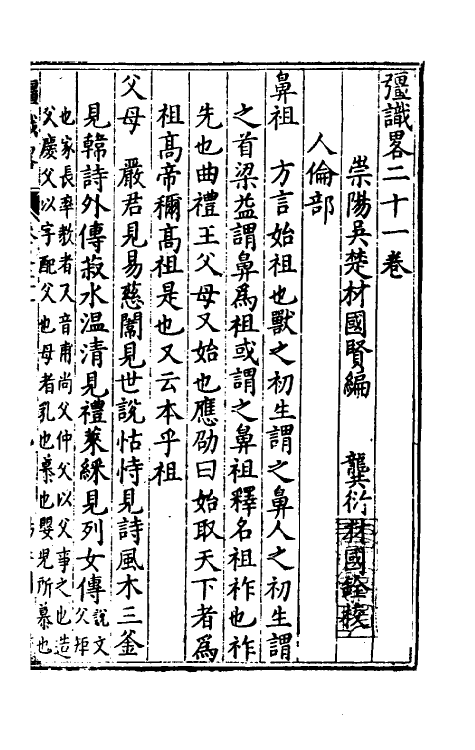 彊識畧二十一卷
崇陽吳楚材國賢編 龔衍材國銓校
人倫部
鼻祖 方言始祖也獸之初生謂之鼻人之初生謂
之首梁益謂鼻爲祖或謂之鼻祖釋名祖祚也祚
先也曲禮王父母又始也應劭曰始取天下者爲
祖高帝稱高祖是也又云本乎祖
父母 嚴君見易慈闈見世說怙恃見詩風木三釜
見韓詩外傳菽水温清見禮萊綵見列女傳說文父矩
也家長率教者又音甫尚父仲父以父事之也造
父慶父以字配父也母者乳也慕也嬰兒所慕也